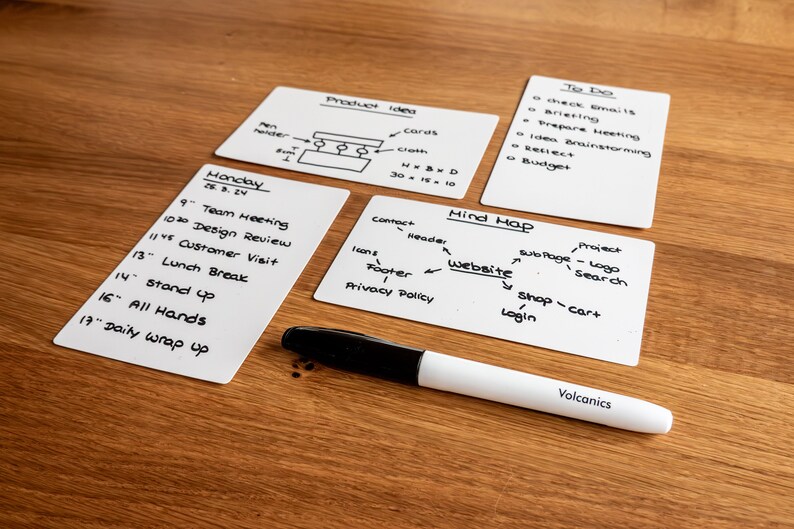 Product Idea
Pen holder
cards
cloth
5cm
H × B × D
30 × 15 × 10
To Do
o Check Emails
o Briefing
o Prepare Meeting
o Idea Brainstorming
o Reflect
o Budget
Monday
25.3.24
9°° Team Meeting
10³⁰ Design Review
11⁴⁵ Customer Visit
13°° Lunch Break
14°° Stand up
16°° All Hands
17°° Daily Wrap up
Mind Map
Contact
Header
Icons
Footer
Privacy Policy
Website
SubPage
Project
Logo
Search
Shop
Cart
Login
Volcanics